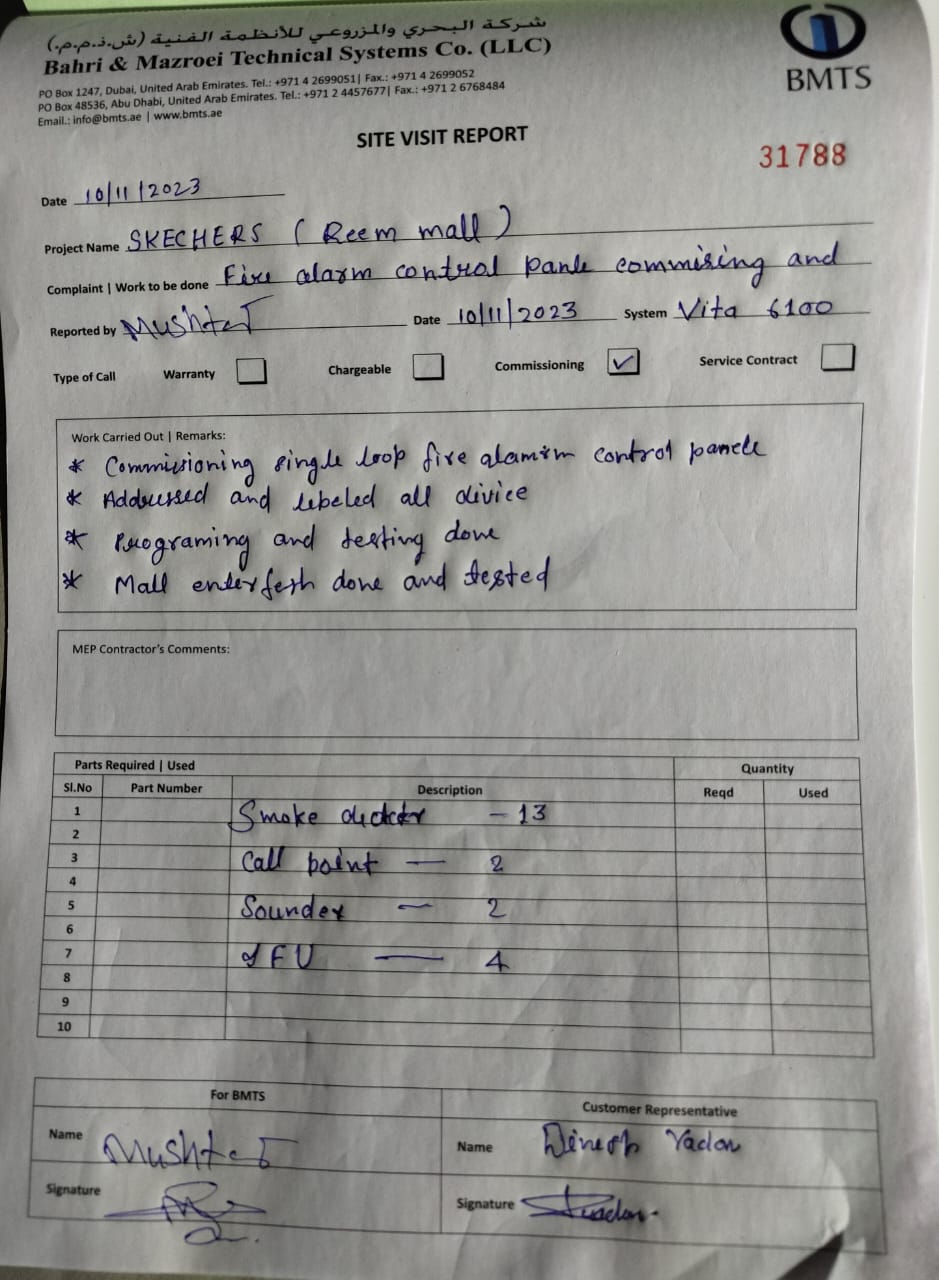 شركة البحري والمزروعي للأنظمة الفنية (ش.ذ.م.م.)
Bahri & Mazroei Technical Systems Co. (LLC)
PO Box 1247, Dubai, United Arab Emirates. Tel.: +971 4 2699051| Fax.: +971 4 2699052
PO Box 48536, Abu Dhabi, United Arab Emirates. Tel.: +971 2 4457677| Fax.: +971 2 6768484
Email.: info@bmts.ae | www.bmts.ae
BMTS
SITE VISIT REPORT
31788
Date 10/11/2023
Project Name SKECHERS ( Reem mall )
Complaint | Work to be done Fire alarm control panle commising and
Reported by Mushtaq Date 10/11/2023 System Vita 6100
Type of Call Warranty Chargeable Commissioning ✓ Service Contract
Work Carried Out | Remarks:
* Commissioning single loop fire alamrm control panele
* Addressed and lebeled all divice
* Programing and testing done
* Mall enterfesh done and tested
MEP Contractor's Comments:
Parts Required | Used Quantity
Sl.No Part Number Description Reqd Used
1 Smoke dicktor - 13
2
3 Call point — 2
4
5 Sounder — 2
6
7 IFU — 4
8
9
10
For BMTS Customer Representative
Name Mushtaq Name Dinesh Yadav
Signature Signature